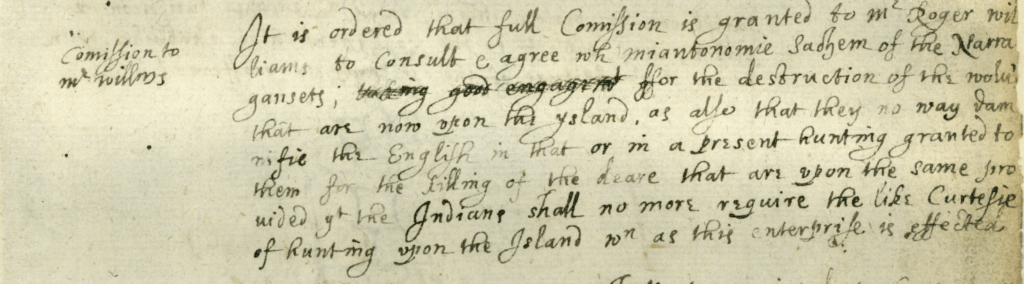 Comission to
mr Willms
It is ordered that full Comission is granted to mr Roger wil
liams to Consult & agree wh miantonomie Sachem of the Narra
gansets; taking good engagemt ffor the destruction of the wolvs
that are now upon the ysland, as also that they no way dam
nifie the English in that or in a present hunting granted to
them for the killing of the deare that are upon the same pro
vided yt the Indians shall no more require the like Curtesie
of hunting upon the Island wn as this enterprise is effected